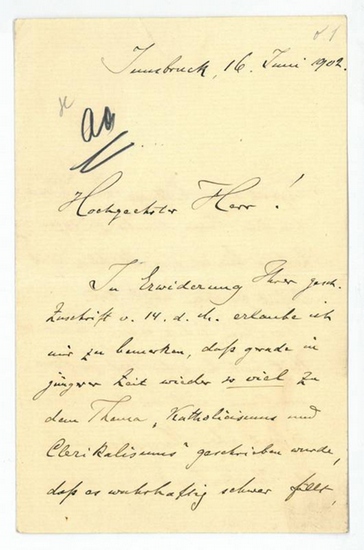 Innsbruck, 16. Juni 1902.
aa
Hochgeehrter Herr!
In Erwiderung Ihrer gesch.
Zuschrift v. 14. d. M. erlaube ich
mir zu bemerken, daß gerade in
jüngerer Zeit wieder so viel zu
dem Thema „Katholicismus und
Clerikalismus" geschrieben wurde,
daß es wahrhaftig schwer fällt,